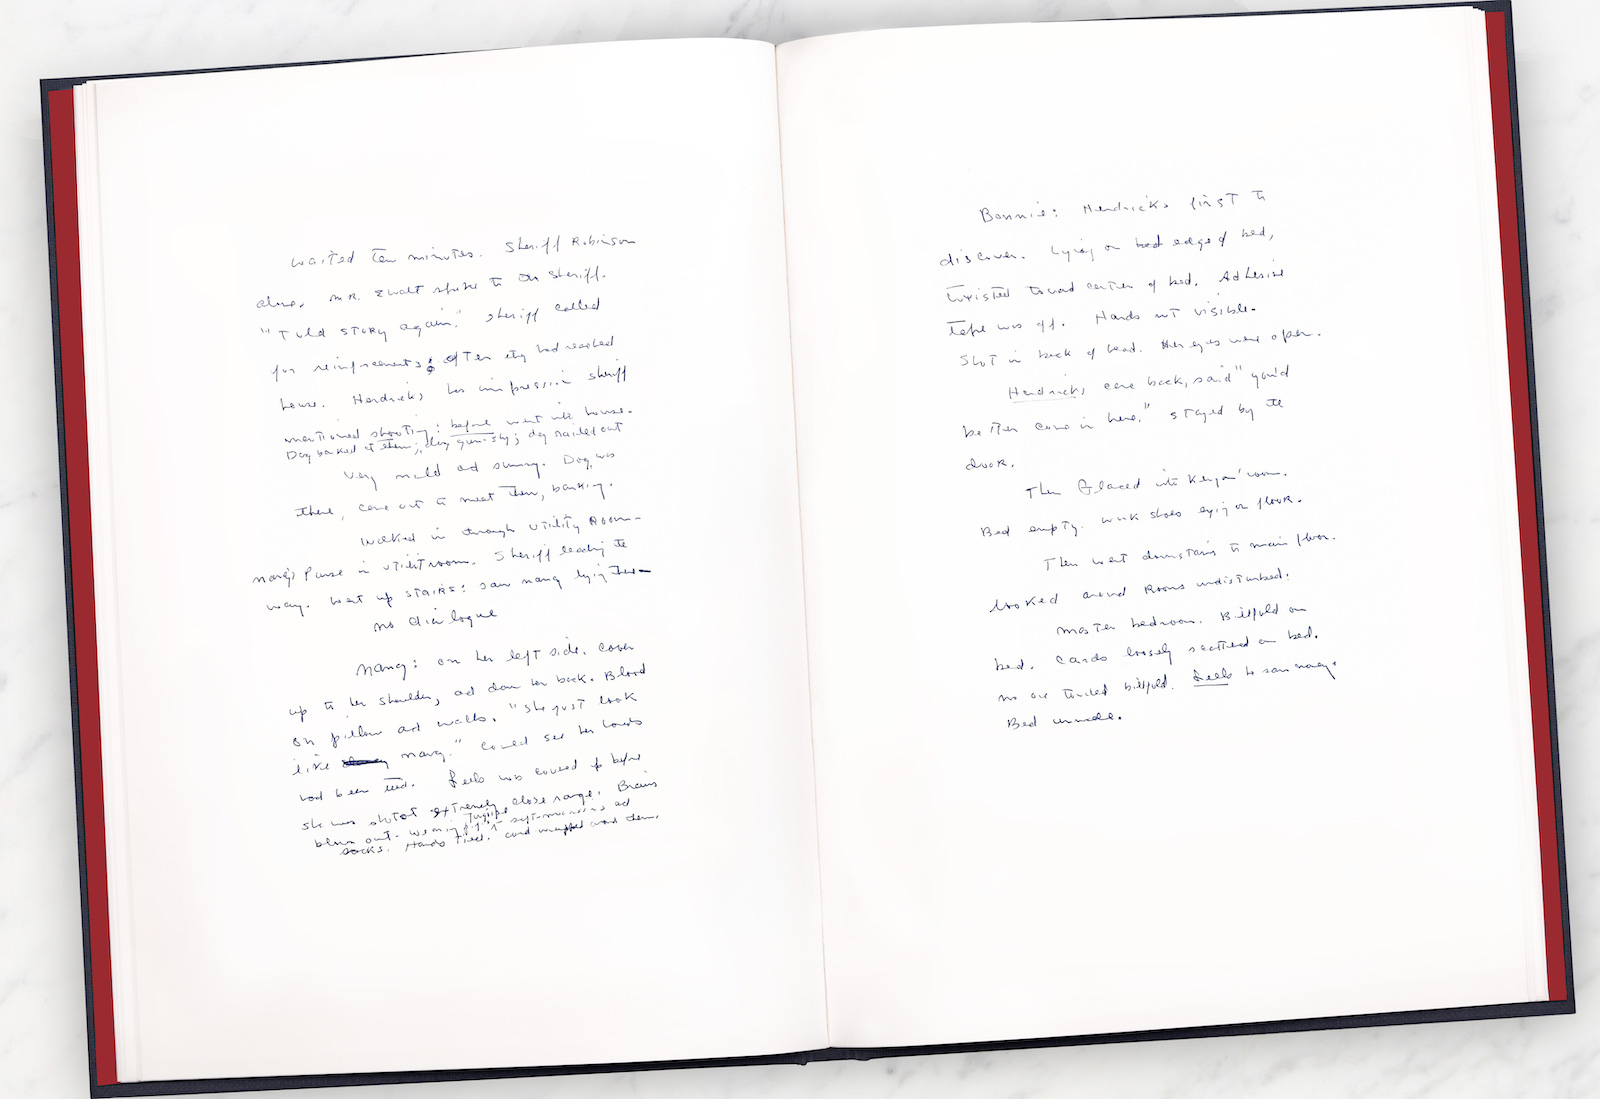 waited ten minutes. Sheriff Robinson
alone. MR. Ewalt spoke to Sheriff.
"Told story again." Sheriff called
for reinforcements; after they had reached
house. Hendricks has impression sheriff
mentioned shooting: before went into house.
Dog barked at them; dog gun-shy; dog railed out
Very mild ad sunny. Dog was
there, came out to meet them, barking.
Walked in through utility Room-
nancy's Purse in utilitroom. Sheriff leading te
way. Went up stairs: saw nancy lying there
no dialogue
Nancy: on her left side. Cover
up to her shoulder, ad down her back. Blood
on pillow ad walls. "She just look
like nancy." Could see her hands
had been tied. Feels was covered up before
she was shot at extremely close range. Brains
blown out. wearing ad
socks. Hands Tied. cord wrapped around them.
Bonnie: Hendricks first to
discover. Lying on bed edge of bed,
Twisted toward center of bed. Adhesive
tape was off. Hands not visible.
Shot in back of head. Her eyes were open.
Hendricks came back, said "you'd
better come in here." Stayed by te
door.
Then Glaced into Kenyon' room.
Bed empty. Work shoes lying on floor.
Then went downstairs to main floor.
looked around Rooms undisturbed.
Master bedroom. Billfold on
bed. Cards loosely scattered on bed.
no one touched billfold. Feels to saw nancy.
Bed unmade.